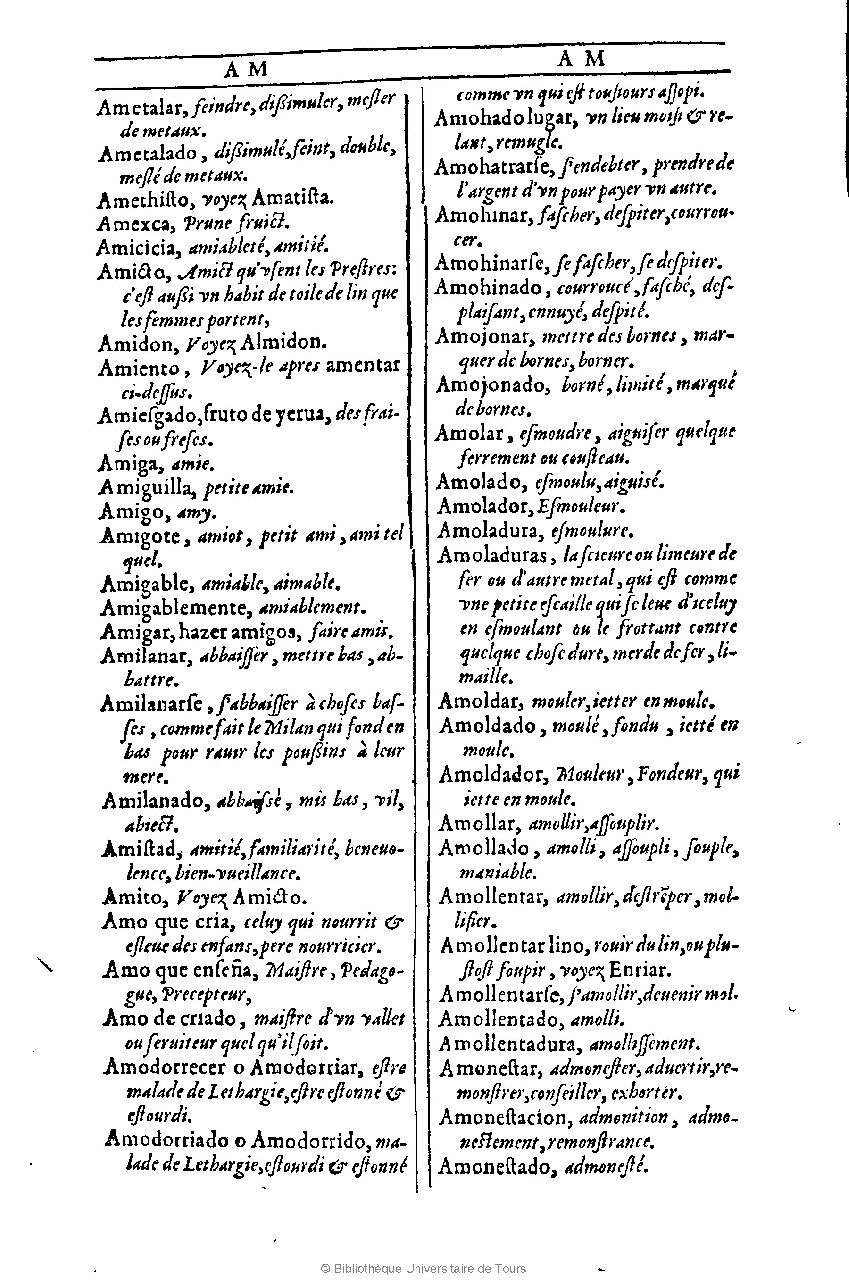 A M
Ametalar, feindre, dißimuler, mesler
de metaux.
Ametalado, dißimulé, feint, double,
meslé de metaux.
Amethisto, voyez Amatista.
Amexca, Prune fruict.
Amicicia, amiableté, amitié.
Amicto, Amict qu'vsent les Prestres:
c'est außi vn habit de toile de lin que
les femmes portent,
Amidon, Voyez Almidon.
Amiento, Voyez-le apres amentar
ci-dessus.
Amiesgado, fruto de yerua, des frai-
ses ou freses.
Amiga, amie.
Amiguilla, petite amie.
Amigo, amy.
Amigote, amiot, petit ami, ami tel
quel.
Amigable, amiable, aimable.
Amigablemente, amiablement.
Amigar, hazer amigos, faire amis.
Amilanar, abbaisser, mettre bas, ab-
battre.
Amilanarse, s'abbaisser à choses bas-
ses, comme fait le Milan qui fond en
bas pour rauir les poußins à leur
mere.
Amilanado, abbaissé, mis bas, vil,
abiect.
Amistad, amitié, familiarité, beneuo-
lence, bien-vueillance.
Amito, Voyez Amicto.
Amo que cria, celuy qui nourrit &
esleue des enfans, pere nourricier.
Amo que enseña, Maistre, Pedago-
gue, Precepteur,
Amo de criado, maistre d'vn vallet
ou seruiteur quel qu'il soit.
Amodorrecer o Amodorriar, estre
malade de Lethargie, estre estonné &
estourdi.
Amodorriado o Amodorrido, ma-
lade de Lethargie, estourdi & estonné
A M
comme vn qui est tousiours assopi.
Amohado lugar, vn lieu moisi & re-
lant, remugle.
Amohatrarse, s'endebter, prendre de
l'argent d'vn pour payer vn autre.
Amohinar, fascher, despiter, courrou-
cer.
Amohinarse, se fascher, se despiter.
Amohinado, courroucé, fasché, des-
plaisant, ennuyé, despité.
Amojonar, mettre des bornes, mar-
quer de bornes, borner.
Amojonado, borné, limité, marqué
de bornes.
Amolar, esmoudre, aiguiser quelque
ferrement ou cousteau.
Amolado, esmoulu, aiguisé.
Amolador, Esmouleur.
Amoladura, esmoulure.
Amoladuras, la scieure ou limeure de
fer ou d'autre metal, qui est comme
vne petite escaille qui se leue d'iceluy
en esmoulant ou le frottant contre
quelque chose dure, merde de fer, li-
maille.
Amoldar, mouler, ietter en moule.
Amoldado, moulé, fondu, ietté en
moule.
Amoldador, Mouleur, Fondeur, qui
iette en moule.
Amollar, amollir, assouplir.
Amollado, amolli, assoupli, souple,
maniable.
Amollentar, amollir, destrẽper, mol-
lifier.
Amollentar lino, rouir du lin, ou plu-
stost soupir, voyez Enriar.
Amollentarse, s'amollir, deuenir mol.
Amollentado, amolli.
Amollentadura, amollissement.
Amonestar, admonester, aduertir, re-
monstrer, conseiller, exhorter.
Amonestacion, admonition, admo-
nestement, remonstrance.
Amonestado, admonesté.
© Bibliothèque Universitaire de Tours